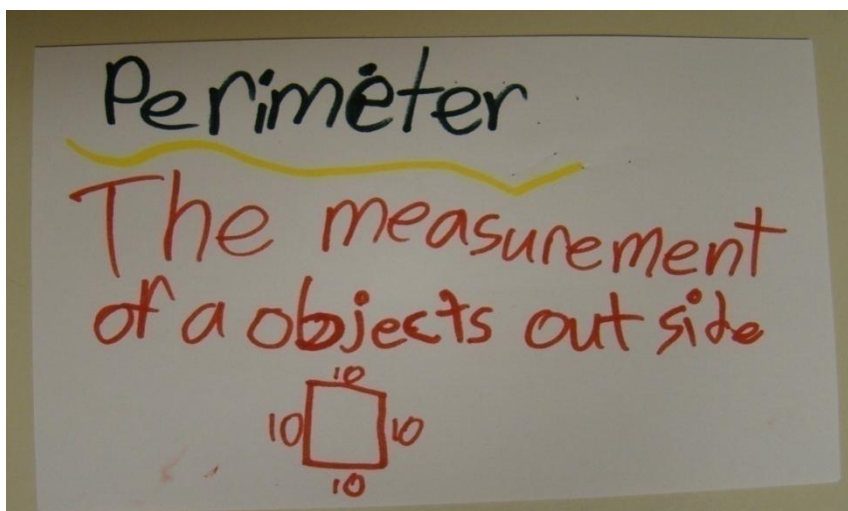 Perimeter
The measurement
of a objects out side
10
10 10
10